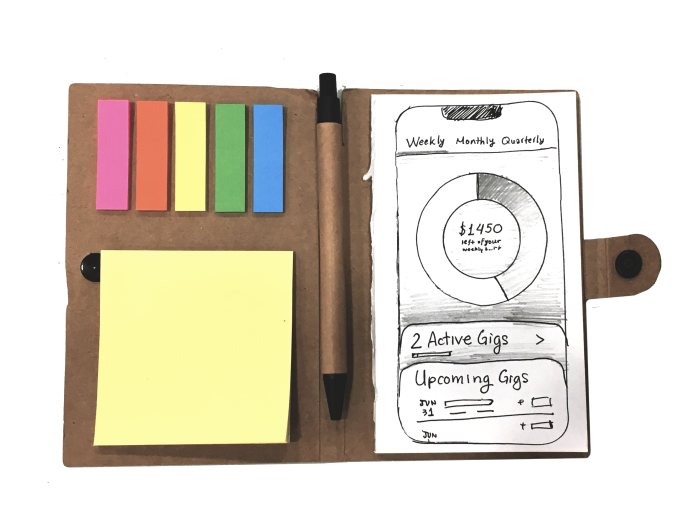 Weekly Monthly Quarterly
$1450
left of your
weekly
2 Active Gigs >
Upcoming Gigs
JUN
31
+
JUN